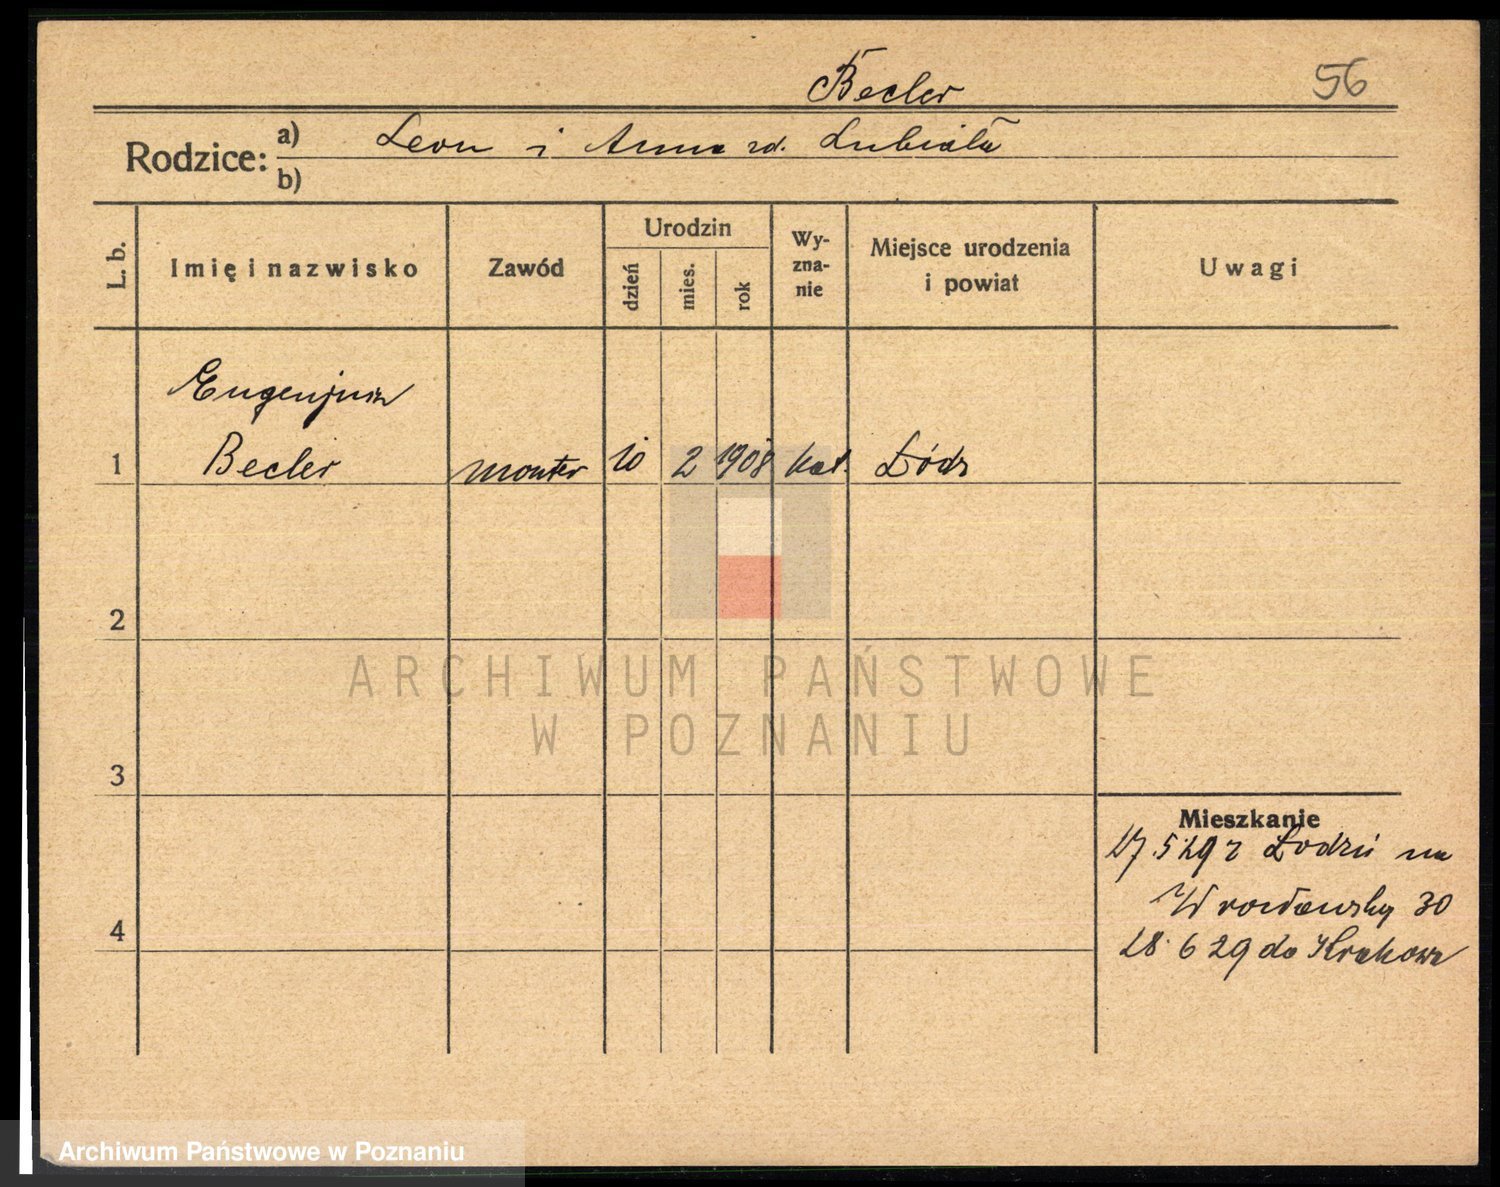 Becler
56
Rodzice: a) Leon i Anna zd. Lubiała
b)
L. b.
Imię i nazwisko
Zawód
Urodzin
dzień
mies.
rok
Wy-
zna-
nie
Miejsce urodzenia
i powiat
Uwagi
Eugenjusz
1 Becler monter 10 2 1908 kat. Łódź
2
3
4
Mieszkanie
27.5.29 z Łodzi na
Wrocławsky 30
28.6 29 do Krakowa
ARCHIWUM PAŃSTWOWE
W POZNANIU
Archiwum Państwowe w Poznaniu